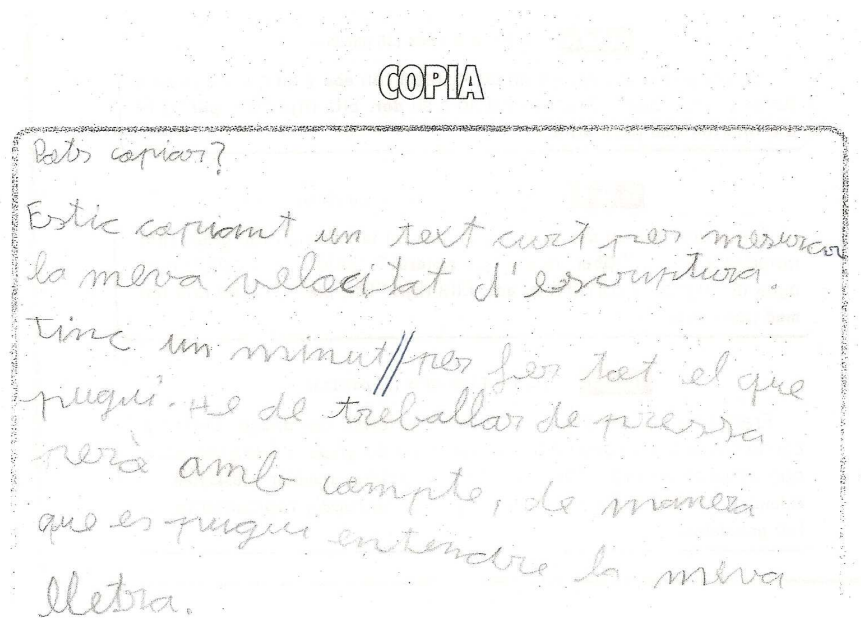 COPIA
Pots copiar?
Estic copiant un text curt per mesurar
la meva velocitat d'escriptura.
Tinc un minut // per fer tot el que
pugui. He de treballar de pressa
però amb compte, de manera
que es pugui entendre la meva
lletra.